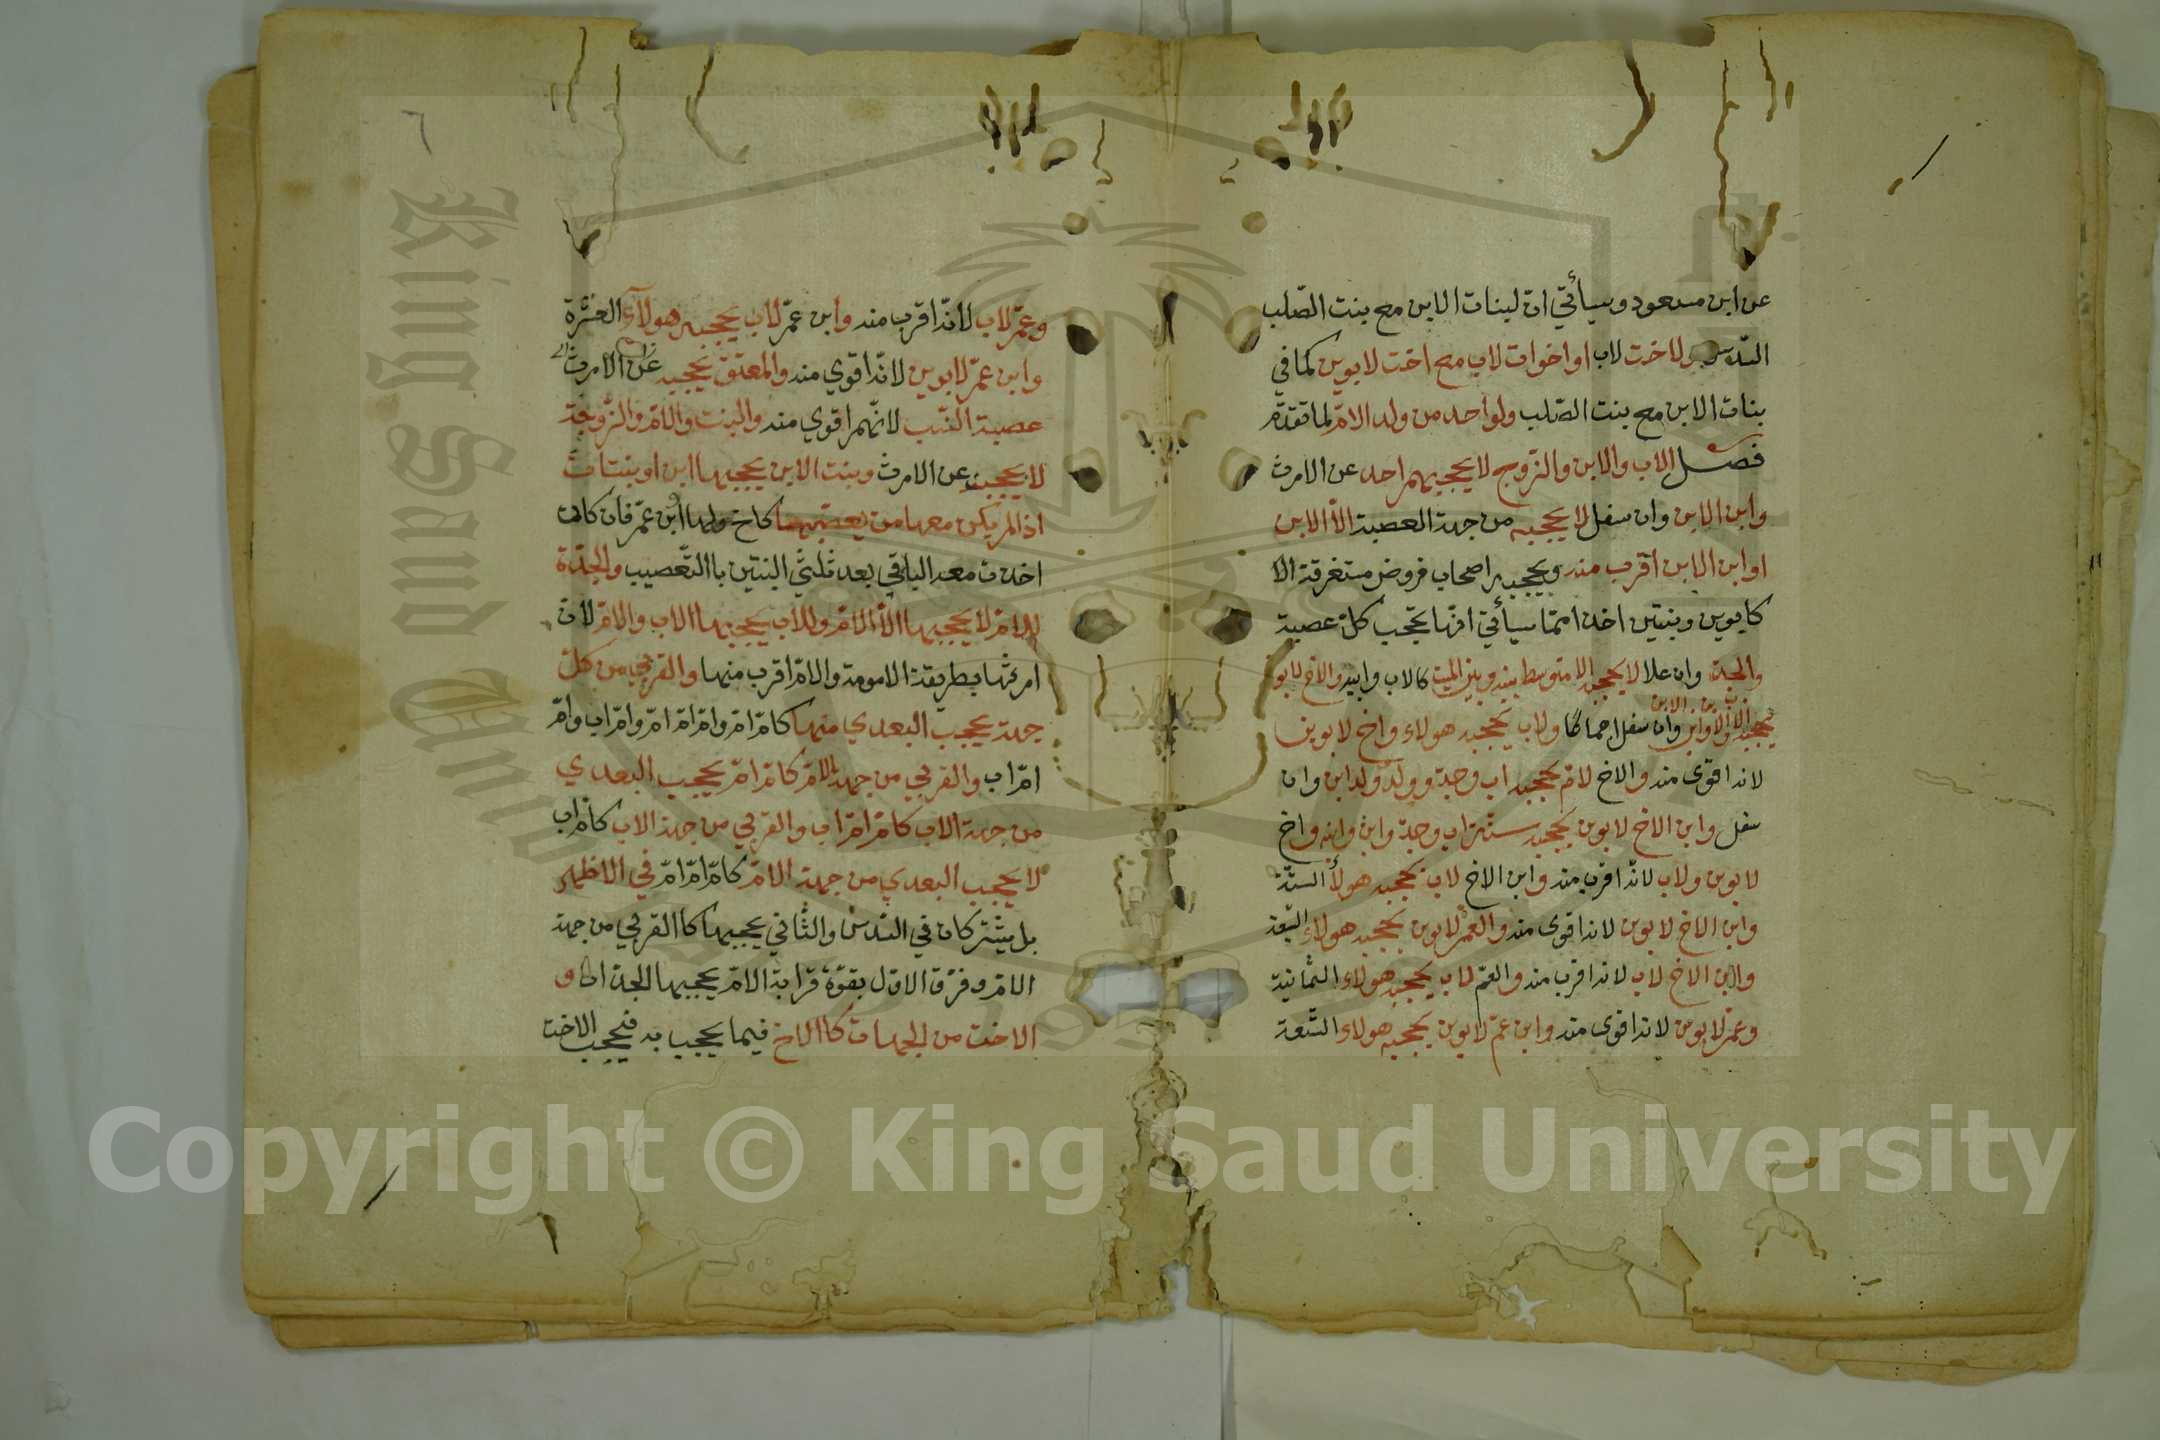 عن ابن مسعود وسيأتي ان لبنات الابن مع بنت الصّلب
السّدس ولاخت لاب او اخوات لاب مع اخت لابوين كما في
بنات الابن مع بنت الصّلب ولواحد من ولد الامّ لما تقدّم
فصل الاب والابن والزّوج لا يحجبهم احد عن الارث
وابن الابن وان سفل لا يحجبه من جهة العصبة الّا الابن
او ابن الابن اقرب منه ويحجبه اصحاب فروض مستغرقة الا
كابوين وبنتين اخذا ممّا سيأتي انّها يحجب كلّ عصبة
والجد وان علا لا يحجبه الا متوسط بينه وبين الميت كالاب وابيه والاخ لابو
يحجبه الاب والابن وابن الابن وان سفل اجماعا ولاب يحجبه هولاء واخ لابوين
لانه اقوى منه والاخ لامّ يحجبه اب وجدّ وولد وولد ابن وان
سفل وابن الاخ لابوين يحجبه ستة اب وجدّ وابن وابنه واخ
لابوين ولاب لانّه اقرب منه وابن الاخ لاب يحجبه هولاء الستّة
وابن الاخ لابوين لانه اقوى منه والعمّ لابوين يحجبه هولاء السّبعة
وابن الاخ لاب لانه اقرب منه والعمّ لاب يحجبه هولاء الثمانية
وعمّ لابوين لانه اقوى منه وابن عمّ لابوين يحجبه هولاء التّسعة
٦
وعمّ لاب لانّه اقرب منه وابن عمّ لاب يحجبه هولاء العشرة
وابن عمّ لابوين لانّه اقوي منه والمعتق يحجبه عن الارث
عصبة النّسب لانّهم اقوي منه والبنت والامّ والزّوجة
لا يحجبن عن الارث وبنت الابن يحجبها ابن او بنتان
اذا لم يكن معها من يعصّبها كاخ ولها ابن عمّ فان كان
اخذت معه الباقي بعد ثلثي البنتين باالتّعصيب والجدّة
للامّ لا يحجبها الّا الامّ وللاب يحجبها الاب والامّ لان
ارثها بطريقة الامومة والامّ اقرب منها والقربي من كلّ
جهة يحجب البعدي منها كامّ امّ وامّ امّ امّ وامّ اب وامّ
امّ اب والقربي من جهة الامّ كامّ امّ يحجب البعدي
من جهة الاب كامّ امّ اب والقربي من جهة الاب كامّ اب
لا يحجب البعدي من جهة الامّ كامّ امّ امّ في الاظهر
بل يشتركان في السّدس والثّاني يحجبها كاالقربي من جهة
الامّ وفرّق الاوّل بقوّة قرابة الامّ يحجبها و
الاخت من الجهات كاالاخ فيما يحجب به فيحجب الاخت
King Saud University
1957
Copyright © King Saud University